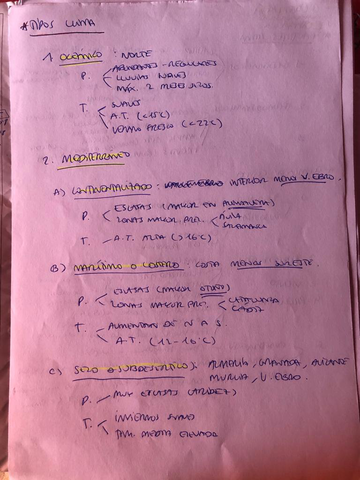 * TIPOS CLIMA
1. OCEÁNICO : NORTE
P. ABUNDANTES - REGULARES
LLUVIAS SUAVES
MÁX. 2 MESES SECOS
T. SUAVES
A.T. (<15ºC)
VERANO FRESCO (<22ºC)
2. MEDITERRANEO
A) CONTINENTALIZADO : INTERIOR MENOS V. EBRO.
P. ESCASAS (MAYOR EN
ZONAS MAYOR PRE. ÁVILA
SALAMANCA
T. - A.T. ALTA (>16ºC)
B) MARÍTIMO O COSTERO : COSTA MENOS SURESTE.
P. ESCASAS (MAYOR OTOÑO)
ZONAS MAYOR PRE. CATALUNYA
T. AUMENTAN DE N A S
A.T. (12-16ºC)
C) SECO O SUBDESÉRTICO : ALMERÍA, GRANADA, ALICANTE
MURCIA, V. EBRO.
P. MUY ESCASAS (ARIDEZ)
T. INVIERNOS SUAVES
TM. MEDIA ELEVADA